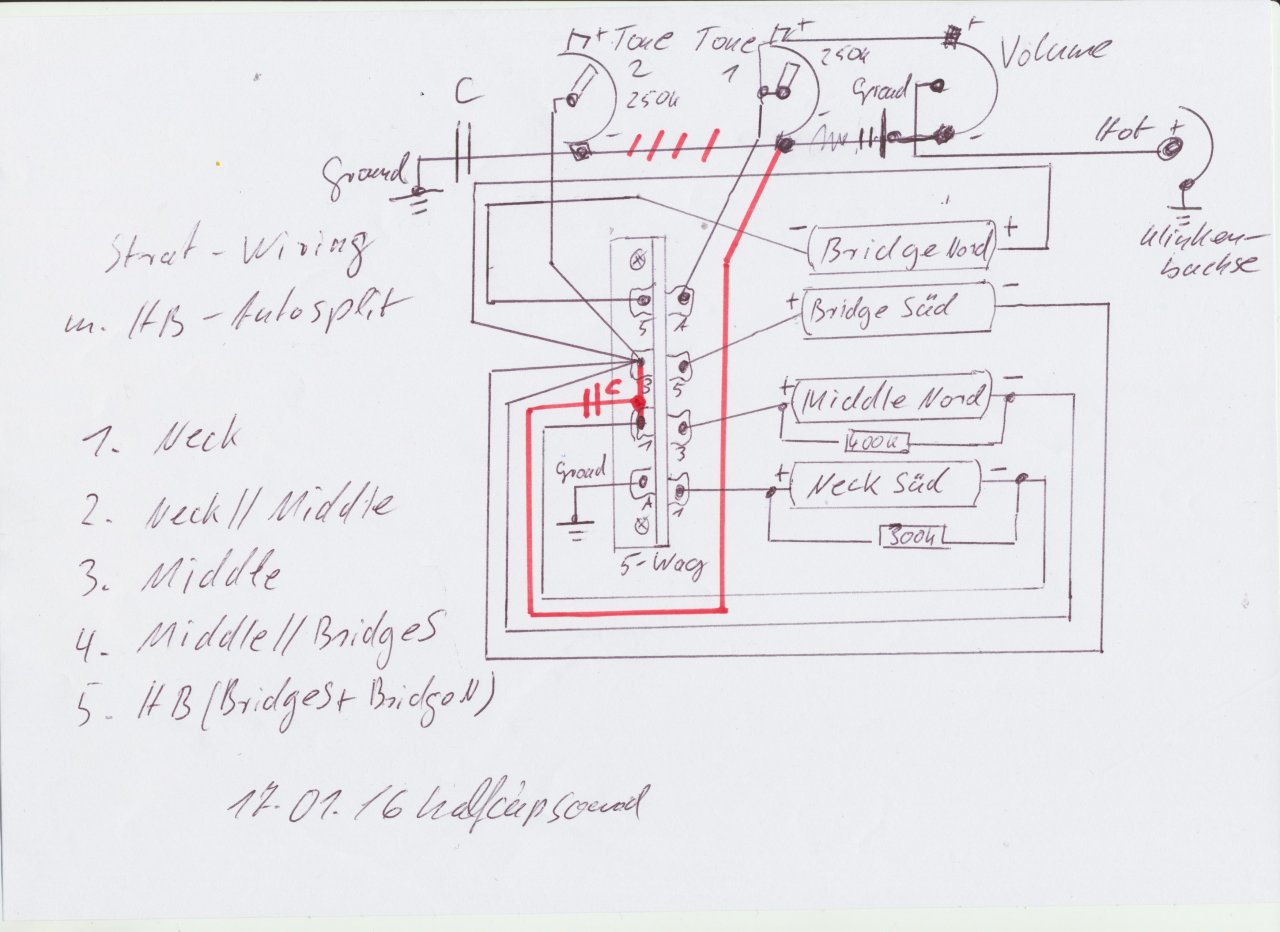 + Tone
2
250k
Tone +
1
250k
+
Volume
Ground
-
-
C
Ground
Hot +
Klinken-
buchse
Strat - Wiring
m. HB - Autosplit
- Bridge Nord +
+ Bridge Süd -
+ Middle Nord -
400k
+ Neck Süd -
300k
5 A
3 5
C
1 3
Ground
A 1
5-Weg
1. Neck
2. Neck // Middle
3. Middle
4. Middle // BridgeS
5. HB (BridgeS + BridgeN)
17.01.16